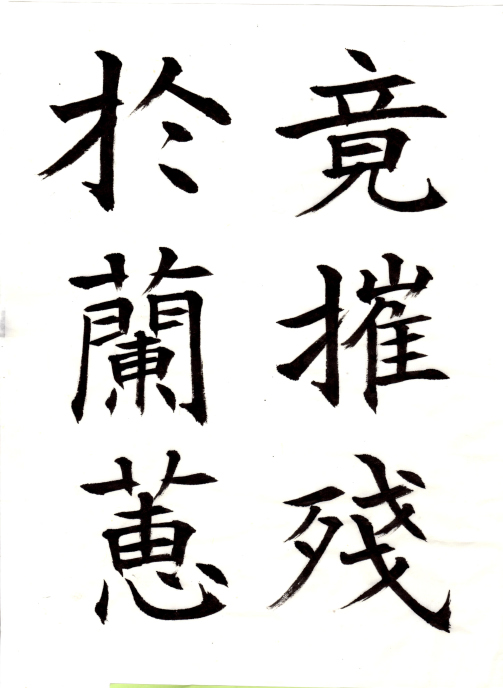 竟摧殘
於蘭蕙